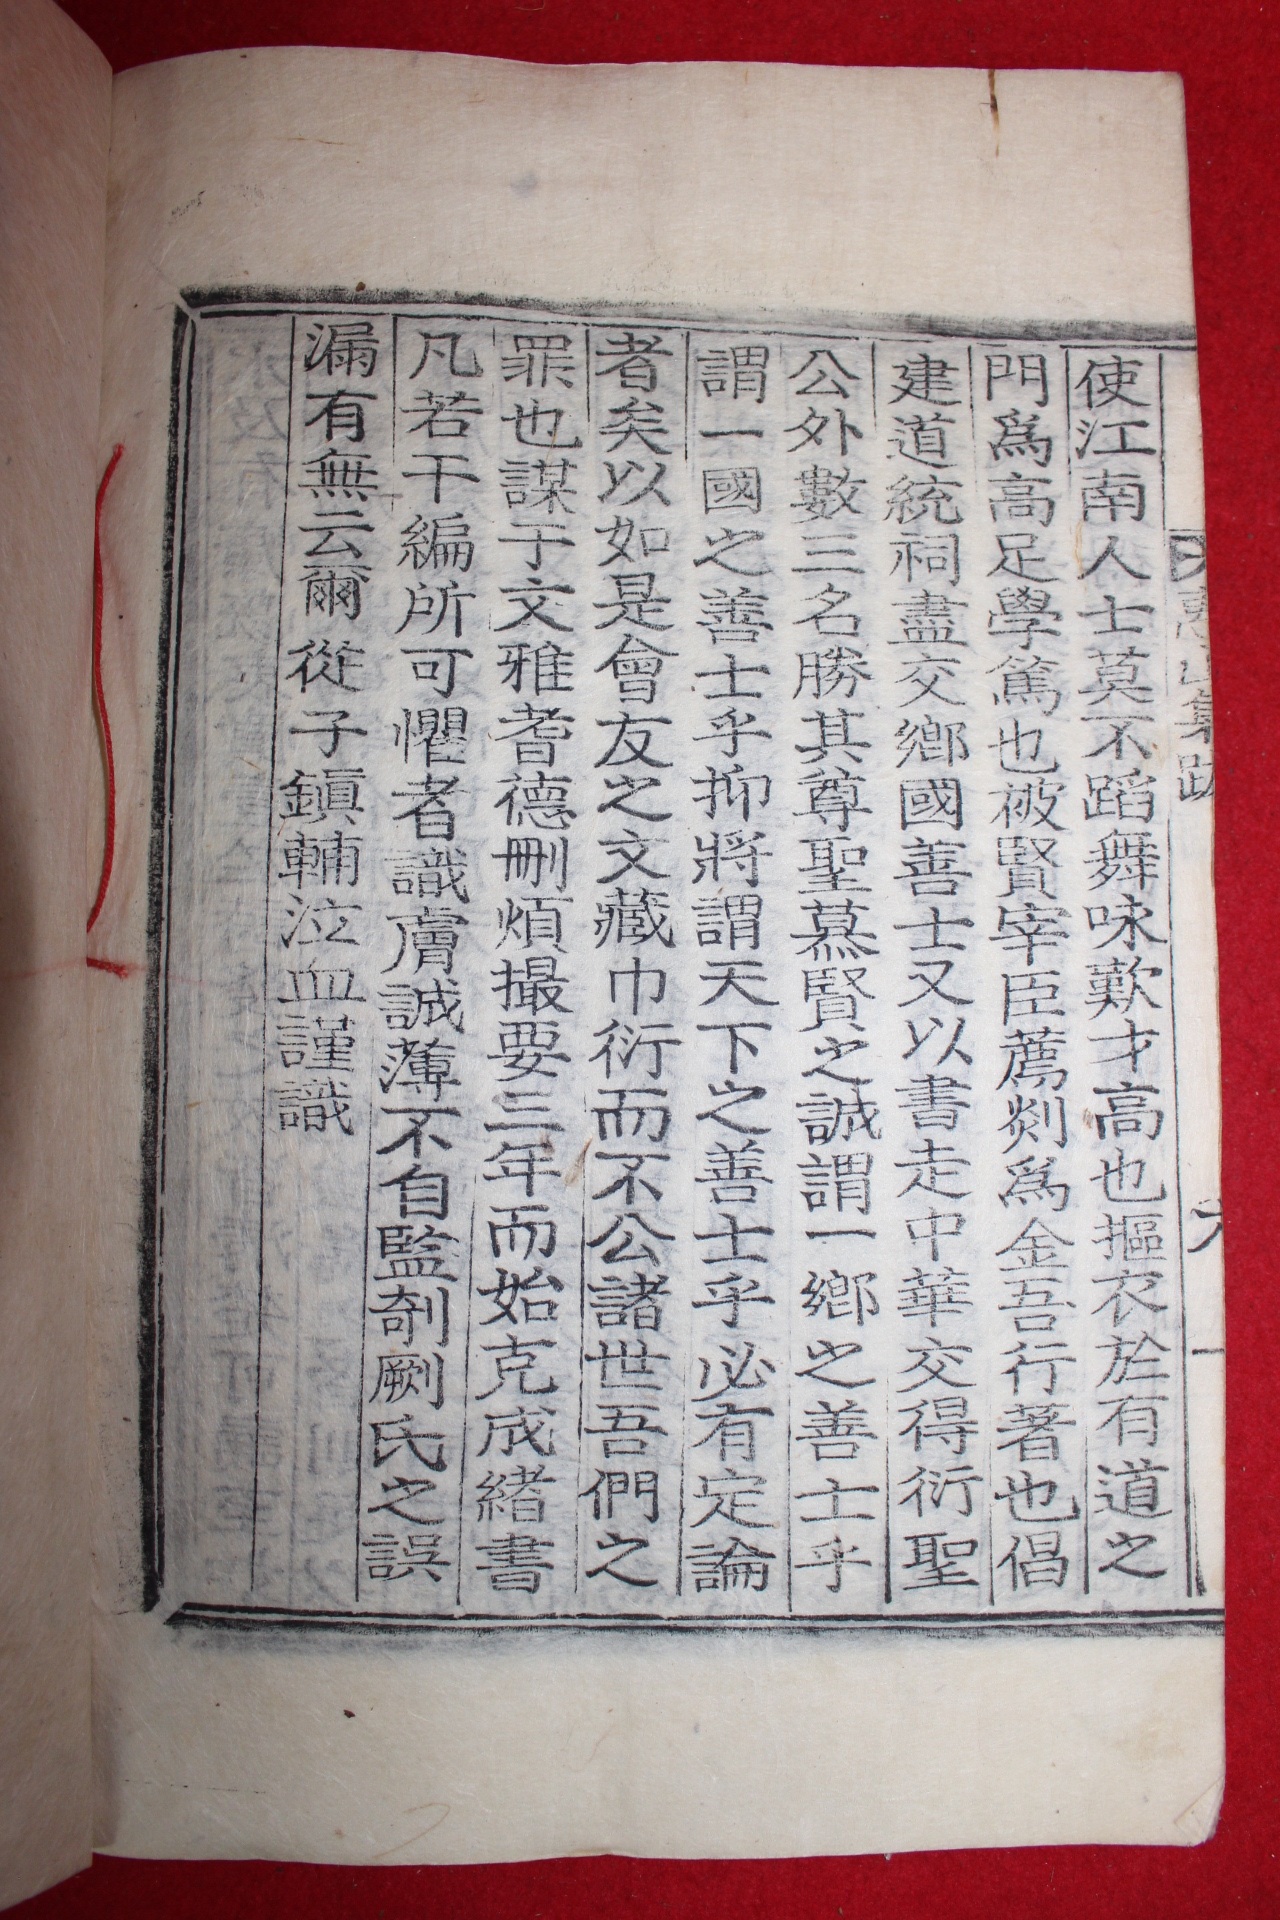 使江南人士莫不蹈舞咏歎才高也摳衣於有道之
門爲高足學篤也被賢宰臣薦剡爲金吾行著也倡
建道統祠盡交鄉國善士又以書走中華交得衍聖
公外數三名勝其尊聖慕賢之誠謂一鄉之善士乎
謂一國之善士乎抑將謂天下之善士乎必有定論
者矣以如是會友之文藏巾衍而不公諸世吾們之
罪也謀于文雅耆德刪煩撮要三年而始克成緖書
凡若干編所可懼者識膚誠薄不自監剞劂氏之誤
漏有無云爾從子鎭輔泣血謹識
山集跋
六
一